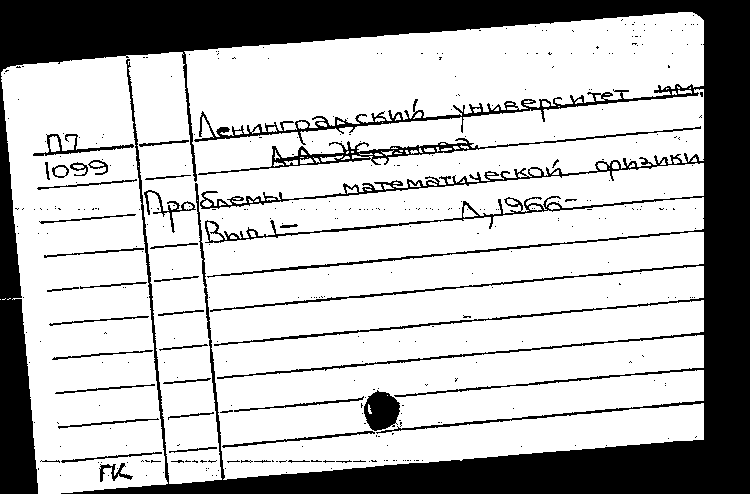 П7
1099
Ленинградский университет им.
А.А. Жданова.
Проблемы математической физики
Вып. 1-
Л., 1966-
ГК